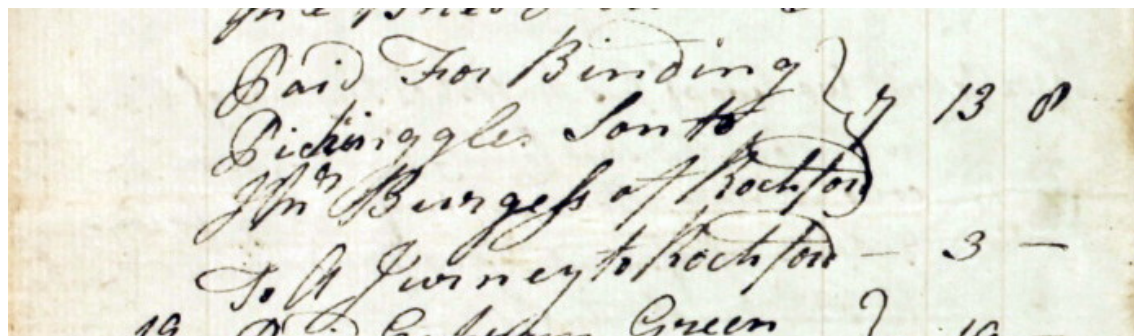 Paid For Binding
Pickinggles Son to 7 13 8
Mr Burgess of Rochford
To A Jurney to Rochford — 3 —
19 Paid Green